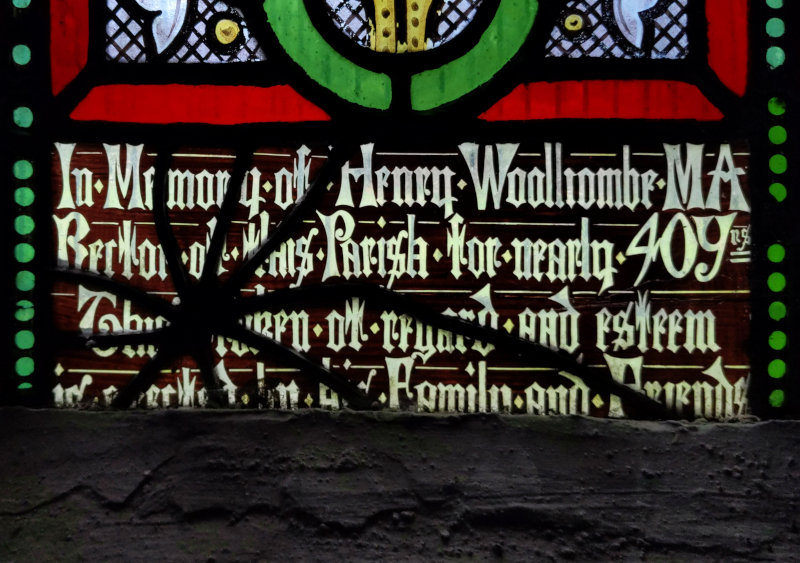 In·Memory·of·Henry·Woollcombe·MA
Rector·of·this·Parish·for·nearly·409rs
This token·of·regard·and esteem
is erected by his Family and Friends